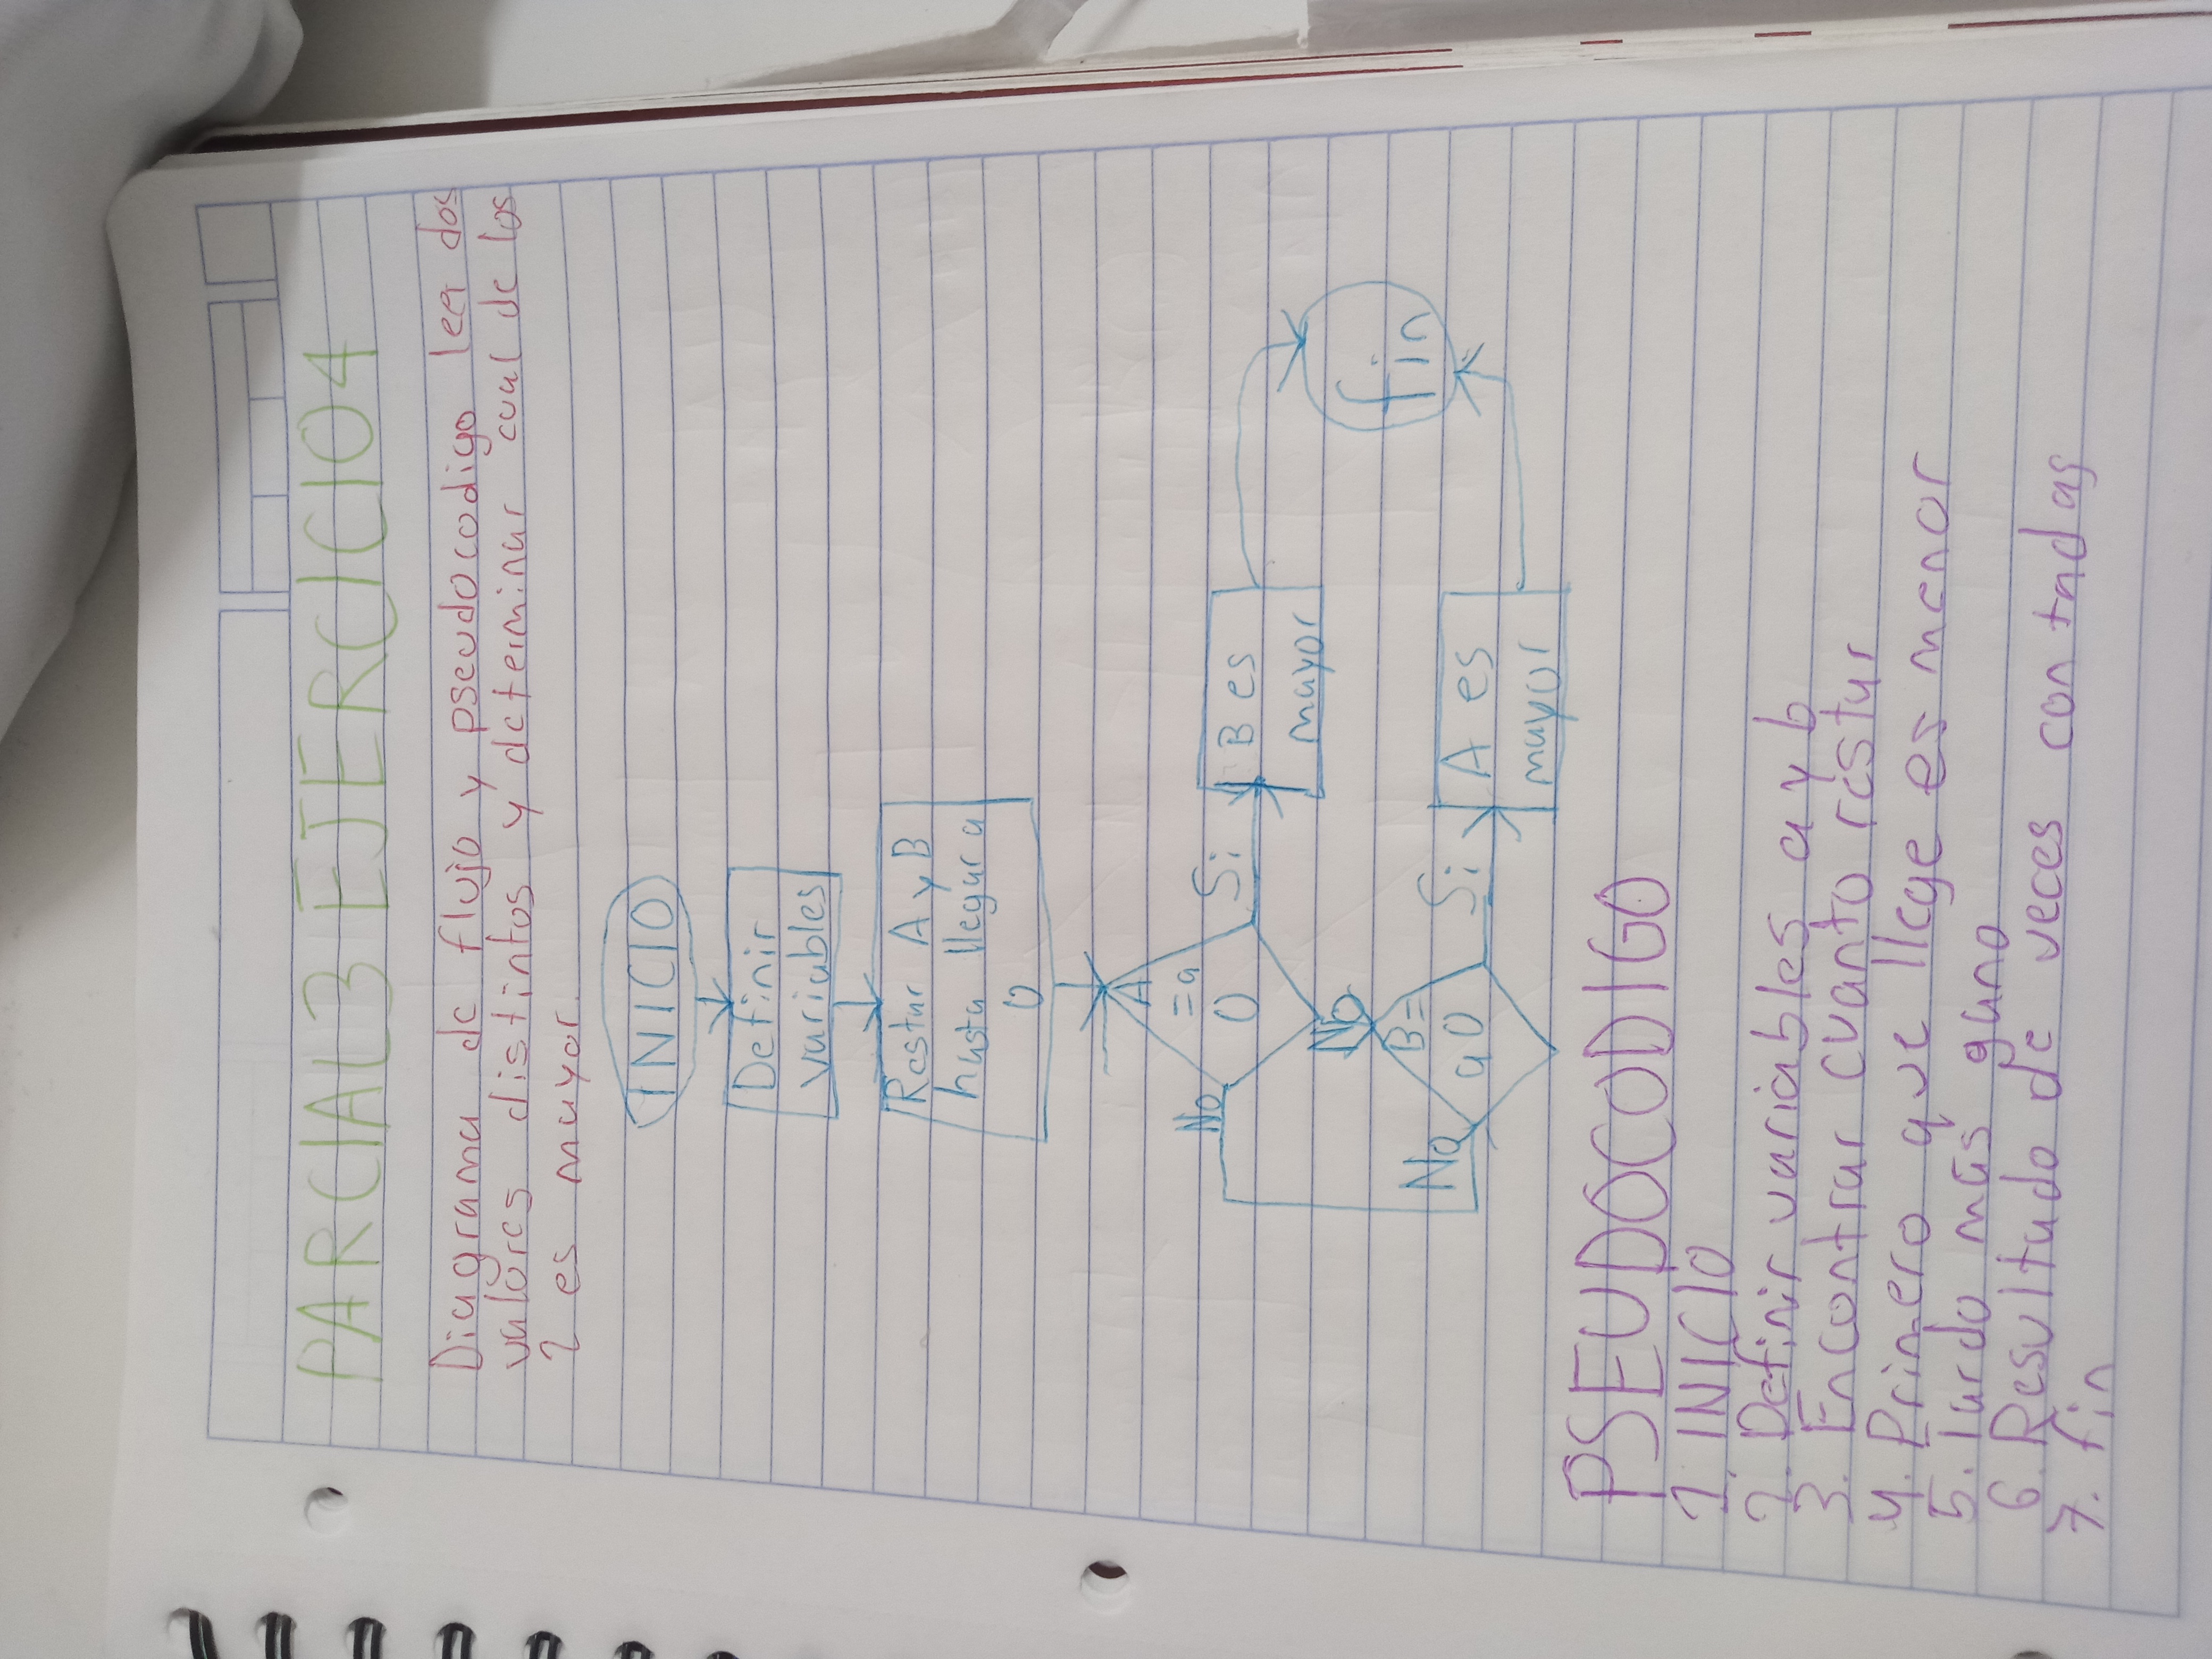 PARCIAL 3 EJERCICIO 4
Diagrama de flujo y pseudocodigo leer dos
valores distintos y determinar cual de los
2 es mayor
INICIO
Definir
variables
Restar A y B
hasta llegar a
0
A
=a
0
Si
No
No
B es
mayor
B=
a0
Si
No
A es
mayor
fin
PSEUDOCODIGO
1. INICIO
2. Definir variables a y b
3. Encontrar cuanto restar
4. Primero que llege es menor
5. Tardo más gano
6. Resultado de veces contadas
7. fin